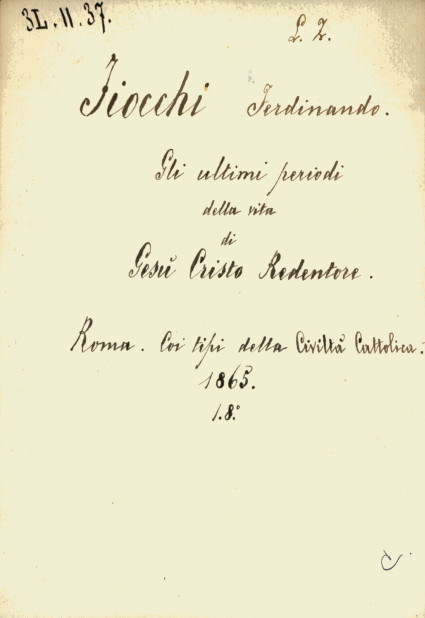 3L.11.37.
L. Z.
Fiocchi Ferdinando.
Gli ultimi periodi
della vita
di
Gesù Cristo Redentore.
Roma. Coi tipi della Civiltà Cattolica.
1865.
1.8°